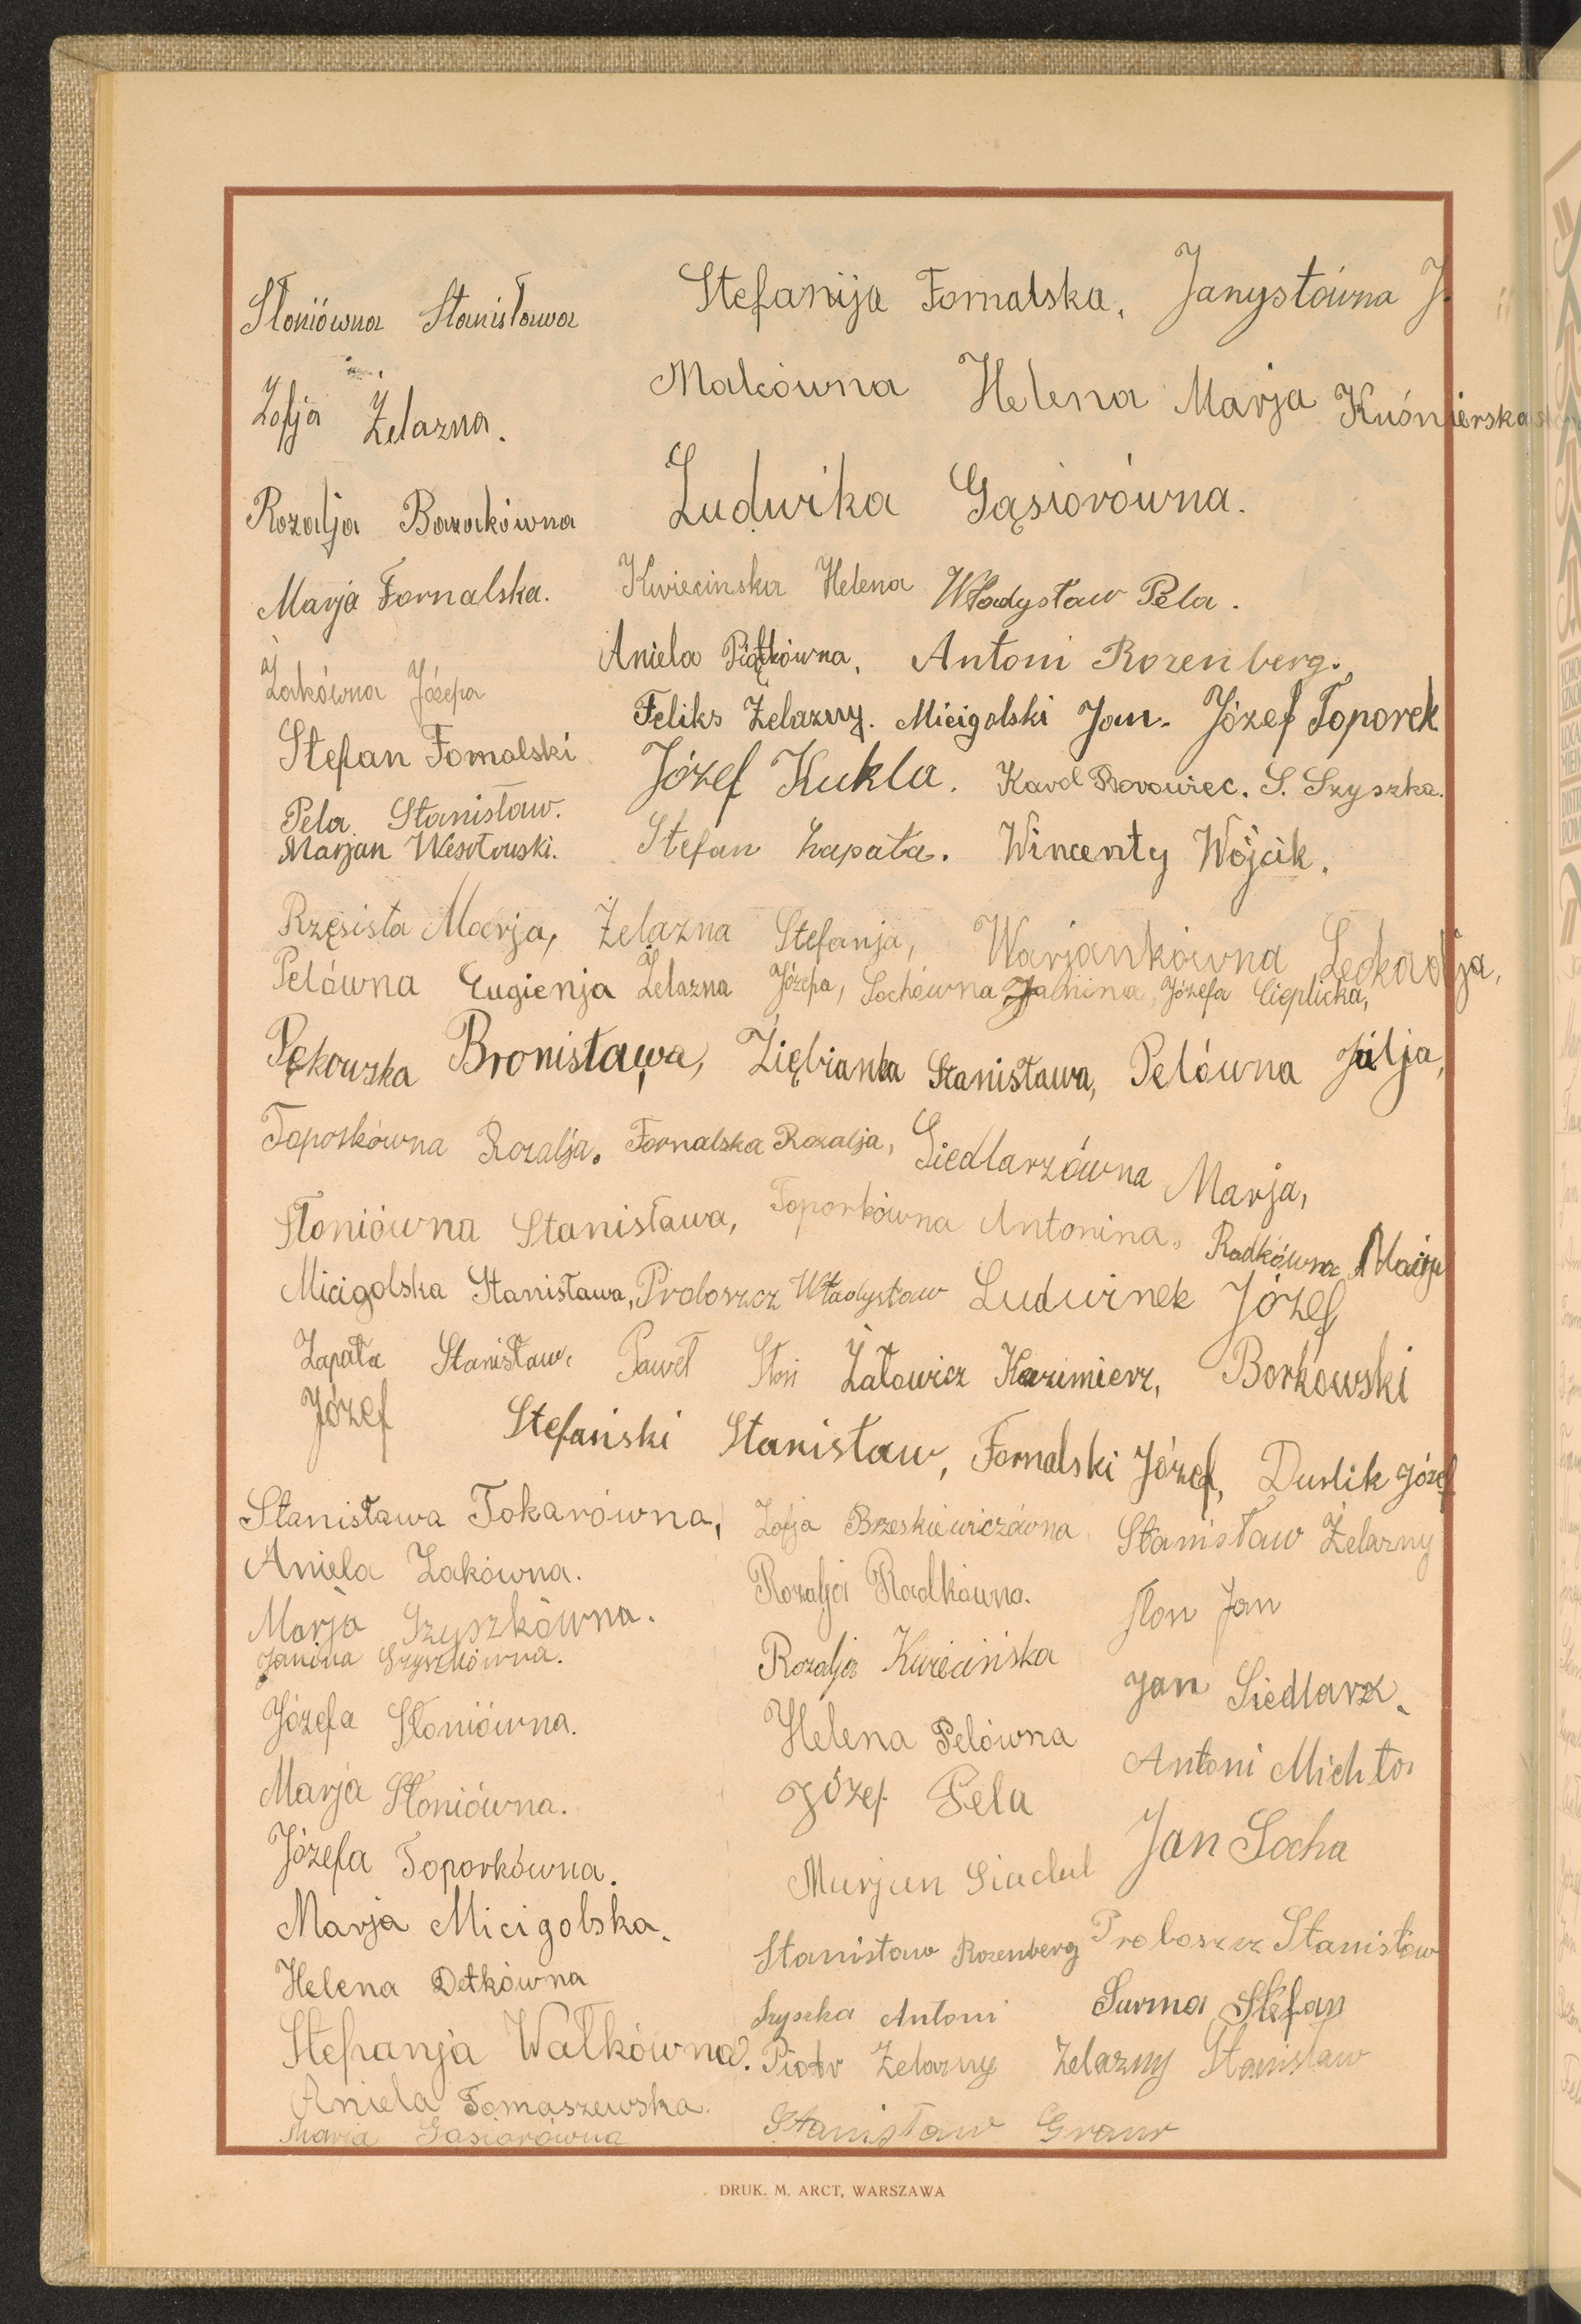 Słoniówna Stanisława Stefanija Fornalska, Janystówna J.
Zofja Żelazna. Malcówna Helena Marja Kuśnierska
Rozalja Bazakówna Ludwika Gąsiorówna.
Marja Fornalska. Kwiecinska Helena Władysław Pela.
Żakówna Józefa Aniela Piątkówna, Antoni Rozenberg.
Stefan Fornalski Feliks Żelazny. Micigolski Jan. Józef Toporek
Pela Stanisław. Józef Kukla. Karol Borowiec. S. Szyszka.
Marjan Wesołowski. Stefan Łapata. Wincenty Wójcik.
Rzęsista Marja, Żelazna Stefanja, Warjankówna Leokadja,
Pelówna Eugienja Żelazna Józefa, Sochówna Janina, Józefa Cieplicka,
Pękowska Bronisława, Ziębianka Stanisława, Pelówna Julja,
Toporkówna Rozalja. Fornalska Rozalja, Siedlarzówna Marja,
Słoniówna Stanisława, Toporkówna Antonina, Radkówna Marja
Micigolska Stanisława, Proboszcz Władysław Ludwinek Józef
Łapata Stanisław. Paweł Słoń Załowicz Kazimierz, Borkowski
Józef Stefański Stanisław, Fornalski Józef, Durlik Józef
Stanisława Tokarówna, Zofja Brzeskiewiczówna Stanisław Żelazny
Aniela Żakówna. Rozalja Radkówna. Słoń Jan
Marja Szyszkówna.
Janina Szyszkówna. Rozalja Kwiecińska Jan Siedlarz.
Józefa Słoniówna. Helena Pelówna Antoni Michto
Marja Słoniówna. Józef Pela Jan Socha
Józefa Toporkówna. Marjan Siadul
Marja Micigolska. Stanisław Rozenberg Proboszcz Stanisław
Helena Detkówna Szyszka Antoni Surma Stefan
Stefanja Wałkówna. Piotr Żelazny Żelazny Stanisław
Aniela Tomaszewska. Stanisław Graur
Marja Gąsiorówna
DRUK. M. ARCT, WARSZAWA